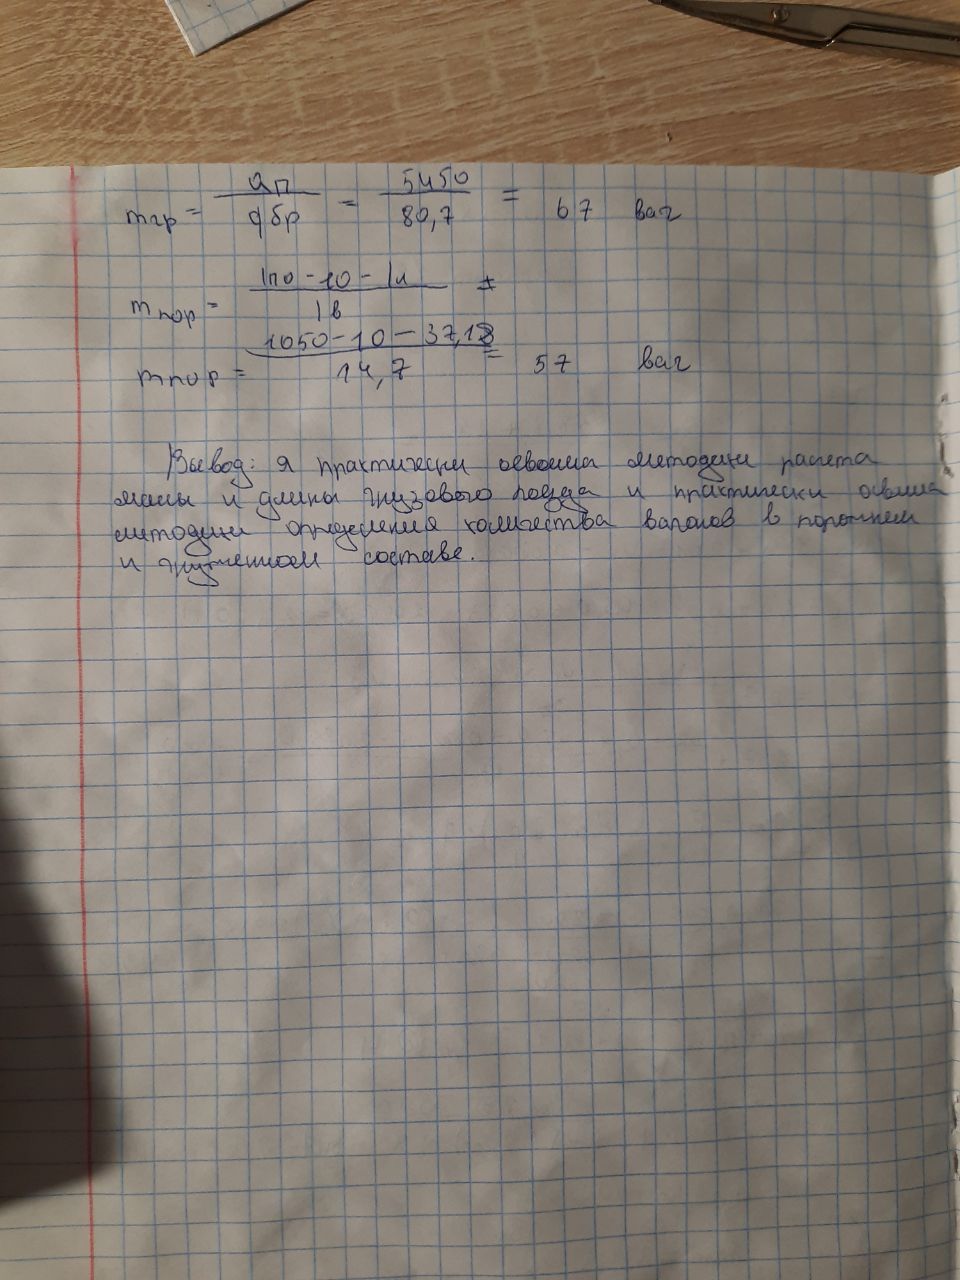 mгр = Qп / qбр = 5450 / 80,7 = 67 ваг
mпор = lпо - 10 - lл / lв =
mпор = 1050 - 10 - 37,12 / 14,7 = 57 ваг
Вывод: я практически освоила методики расчета
массы и длины грузового поезда и практически освоила
методики определения количества вагонов в порожнем
и груженном составе.